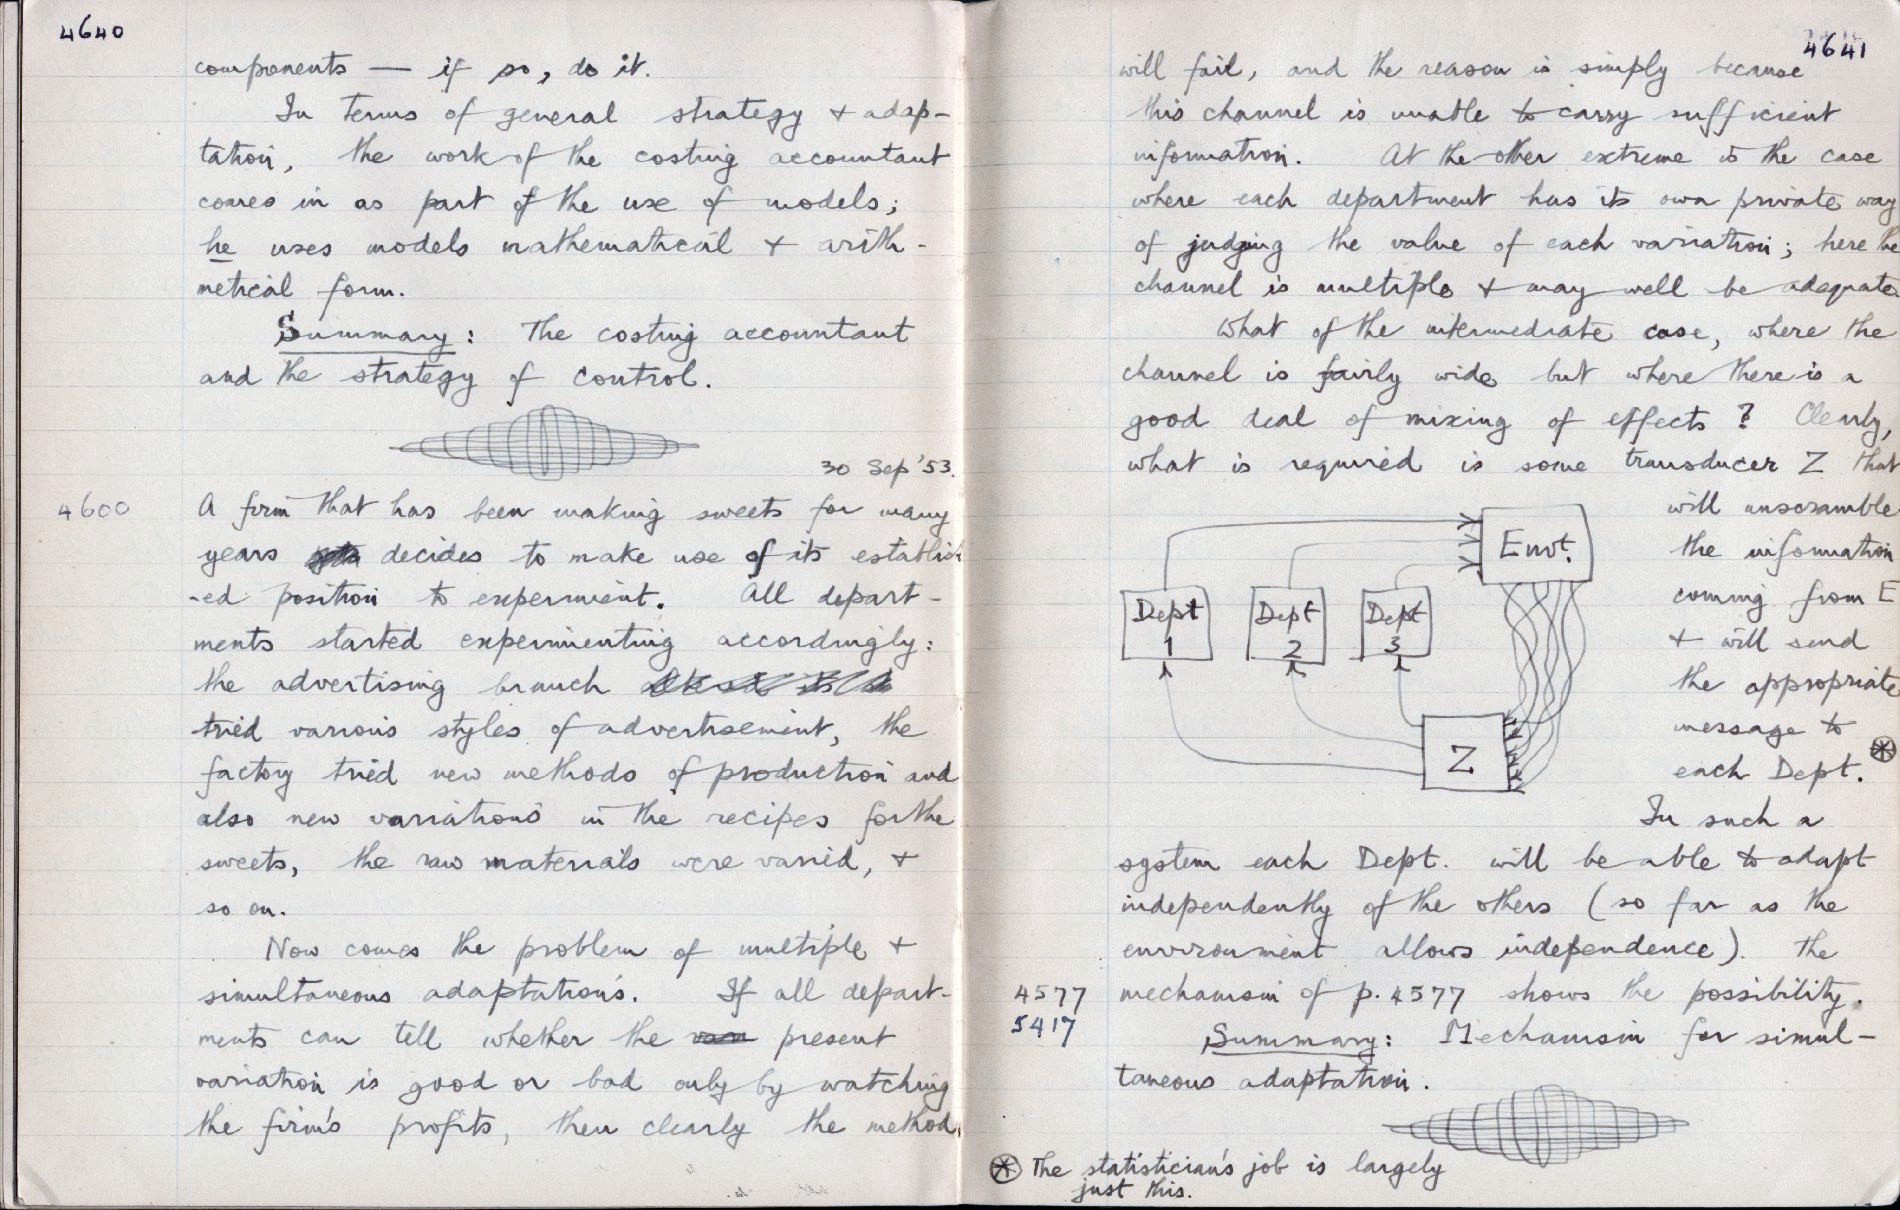 4640
components — if so, do it.
In terms of general strategy + adap-
tation, the work of the costing accountant
comes in as part of the use of models;
he uses models mathematical + arith-
metical form.
Summary: The costing accountant
and the strategy of control.
30 Sep '53.
4600
A firm that has been making sweets for many
years decides to make use of its establish
-ed position to experiment. All depart-
ments started experimenting accordingly:
the advertising branch
tried various styles of advertisement, the
factory tried new methods of production and
also new variations in the recipes for the
sweets, the raw materials were varied, +
so on.
Now comes the problem of multiple +
simultaneous adaptations. If all depart-
ments can tell whether the present
variation is good or bad only by watching
the firm's profits, then clearly the method
4641
will fail, and the reason is simply because
this channel is unable to carry sufficient
information. At the other extreme is the case
where each department has its own private way
of judging the value of each variation; here the
channel is multiple + may well be adequate.
What of the intermediate case, where the
channel is fairly wide but where there is a
good deal of mixing of effects? Clearly,
what is required is some transducer Z that
will unscramble
the information
coming from E
+ will send
the appropriate
message to
each Dept. ⊛
Envt.
Dept 1
Dept 2
Dept 3
Z
In such a
system each Dept. will be able to adapt
independently of the others (so far as the
environment allows independence). The
4577
mechanism of p. 4577 shows the possibility.
5417
Summary: Mechanism for simul-
taneous adaptation.
⊛ The statistician's job is largely
just this.